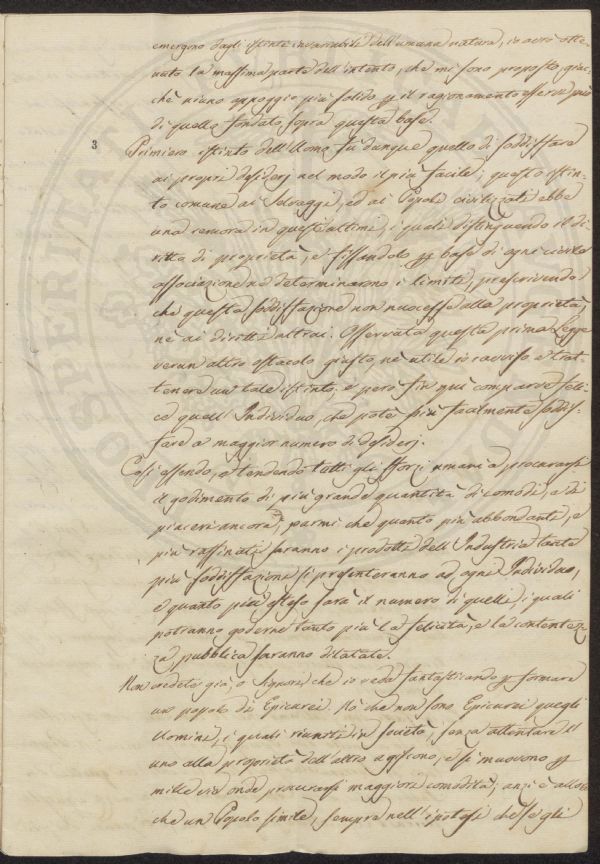 emergono dagli istinti invariabili dell'umana natura, io avrò otte-
nuto la massima parte dell'intento, che mi sono proposto, giac-
chè niuno appoggio più solido p il ragionamento esservi può
di quello fondato sopra questa base.
3
Primiero istinto dell'Uomo fu dunque quello di soddisfare
ai proprj desiderj nel modo il più facile; questo istin-
to comune ai Selvaggj, ed ai Popoli civilizzati ebbe
una remora in questi ultimi, i quali distinguendo il di-
ritto di proprietà, e fissandolo p base di ogni civile
associazione ne determinarono i limiti, prescrivendo
che questa soddisfazione non nuocesse alla proprietà,
nè ai diritti altrui. Osservata questa prima Legge
verun altro ostacolo giusto, nè utile io ravviso a trat-
tenere un tale istinto, e però fin quì comparve feli-
ce quell'Individuo, che potè più facilmente soddis-
fare a maggior numero di desiderj.
Così essendo, e tendendo tutti gli sforzi umani a procurarsi
il godimento di più grande quantità di comodi, e di
piaceri ancora, parmi che quanto più abbondanti, e
più raffinati saranno i prodotti dell'Industria tante
più soddisfazioni si presenteranno ad ogni Individuo,
e quanto più esteso sarà il numero di quelli, i quali
potranno goderne tanto più la felicità, e la contentez-
za pubblica saranno dilatate.
Non credete già, o Signori che io vada fantasticando p formare
un popolo di Epicurei. Nò che non sono Epicurei quegli
Uomini, i quali riuniti in società, senza attentare l'
uno alla proprietà dell'altro agiscono, e si muovono p
mille vie onde procurarsi maggiori comodità; anzi è allora
che un Popolo simile, sempre nell'ipotesi che segli